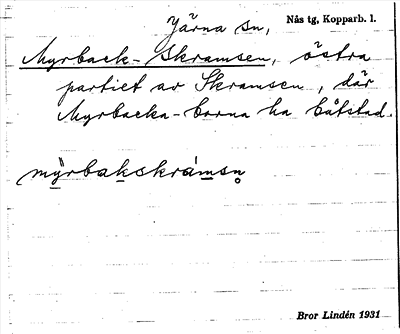 Järna sn, Nås tg, Kopparb. l.
Myrback-Skramsen, östra
partiet av Skramsen, där
Myrbacka-borna ha båtstad.
mỳrbakskrámsn̥
Bror Lindén 1931